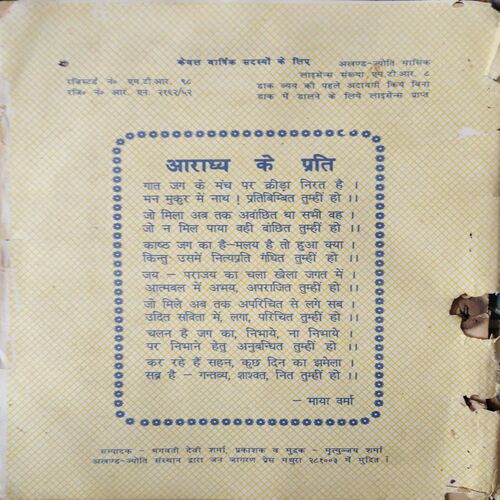 केवल वार्षिक सदस्यों के लिए
अखण्ड-ज्योति मासिक
लाइसेन्स संख्या एम.टी.आर. ८
रजिस्टर्ड नं० एम.टी.आर. १८
डाक व्यय की पहले अदायगी किये बिना
रजि० नं० आर. एन. २१६२/५२
डाक में डालने के लिये लाइसेन्स प्राप्त
आराध्य के प्रति
गात जग के मंच पर क्रीड़ा निरत है ।
मन मुकुर में नाथ ! प्रतिबिम्बित तुम्हीं हो ।।
जो मिला अब तक अवांछित था सभी वह ।
जो न मिल पाया वही वांछित तुम्हीं हो ।।
काष्ठ जग का है-मलय है तो हुआ क्या ।
किन्तु उसमें नित्यप्रति गंधित तुम्हीं हो ।।
जय - पराजय का चला खेला जगत में ।
आत्मबल में अभय, अपराजित तुम्हीं हो ।।
जो मिले अब तक अपरिचित से लगे सब ।
उदित सविता में, लगा, परिचित तुम्हीं हो ।।
चलन है जग का, निभाये, ना निभाये ।
पर निभाने हेतु अनुबन्धित तुम्हीं हो ।।
कर रहे हैं सहन, कुछ दिन का झमेला ।
सब्र है - गन्तव्य, शाश्वत, नित तुम्हीं हो ।।
- माया वर्मा
सम्पादक - भगवती देवी शर्मा, प्रकाशक व मुद्रक - मृत्युञ्जय शर्मा
अखण्ड-ज्योति संस्थान द्वारा जन जागरण प्रेस मथुरा २८१००३ में मुद्रित ।